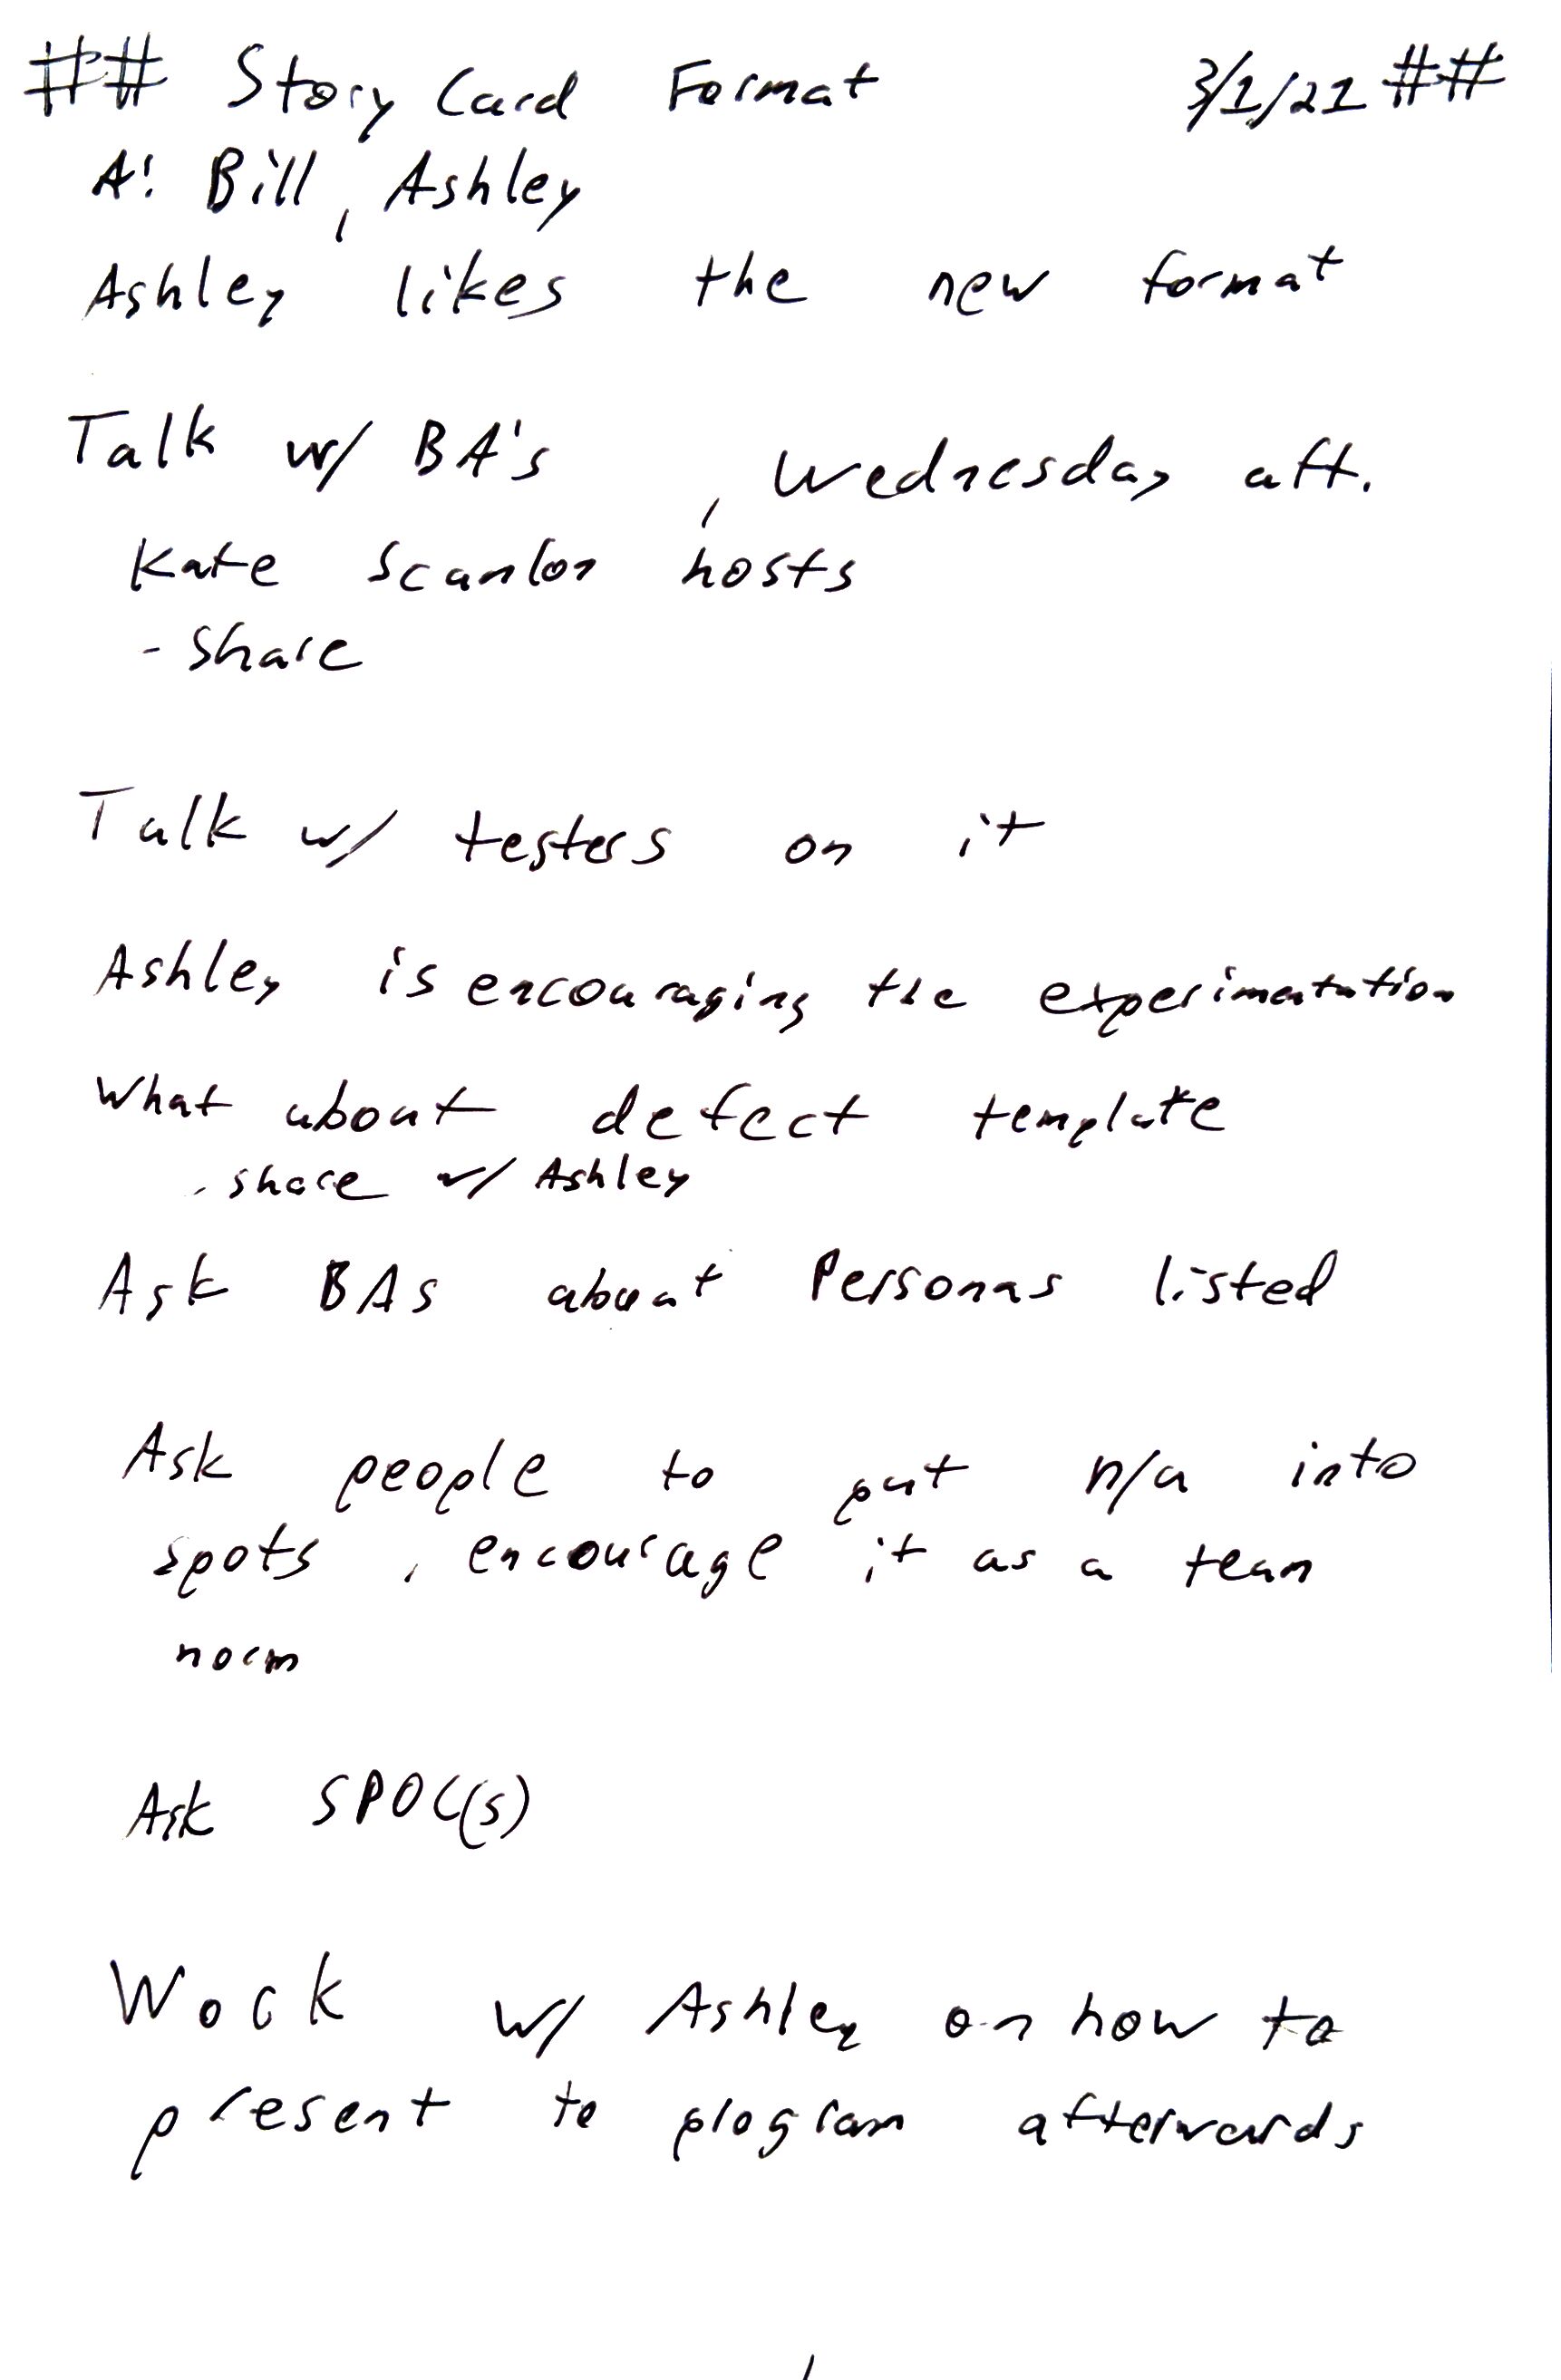 ## Story Card Format 3/1/21 ##
A: Bill, Ashley
Ashley likes the new format
Talk w/ BA's, Wednesday aft.
Kate Scanlon hosts
- Share
Talk w/ testers on it
Ashley is encouraging the experimentation
What about defect template
- share w/ Ashley
Ask BAs about Personas listed
Ask people to put n/a into
spots, encourage it as a team
norm
Ask SPOC(s)
Work w/ Ashley on how to
present to program afterwards